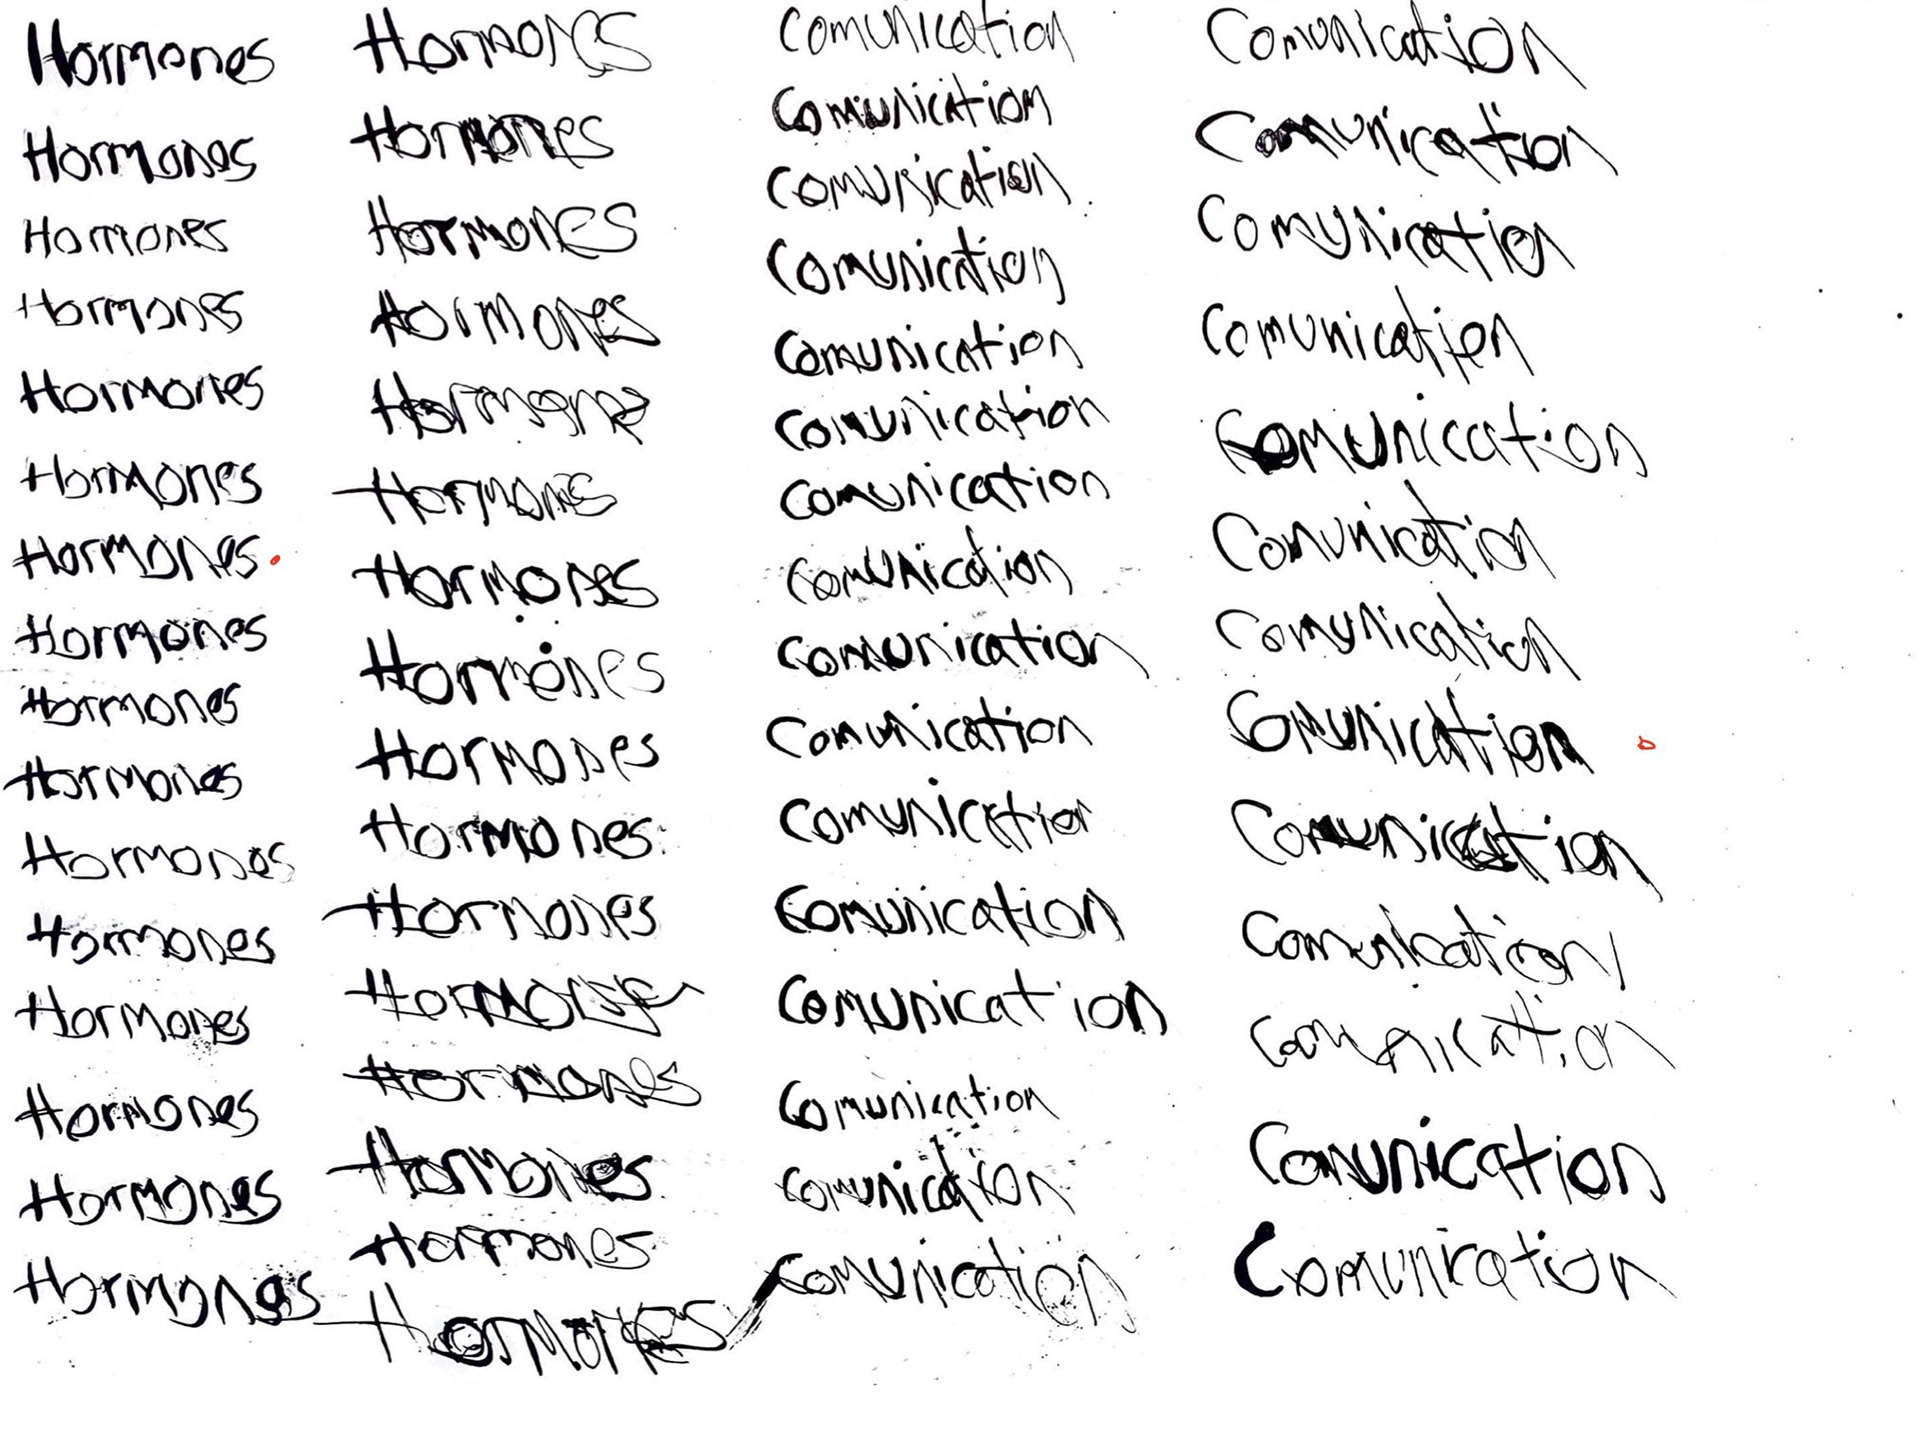 Hormones
Hormones
Hormones
Hormones
Hormones
Hormones
Hormones
Hormones
Hormones
Hormones
Hormones
Hormones
Hormones
Hormones
Hormones
Hormones
Hormones
Hormones
Hormones
Hormones
Hormones
Hormones
Hormones
Hormones
Hormones
Hormones
Hormones
Hormones
Hormones
Hormones
Hormones
Comunication
Comunication
Comunication
Comunication
Comunication
Comunication
Comunication
Comunication
Comunication
Comunication
Comunication
Comunication
Comunication
Comunication
Comunication
Comunication
Comunication
Comunication
Comunication
Comunication
Comunication
Comunication
Comunication
Comunication
Comunication
Comunication
Comunication
Comunication
Comunication